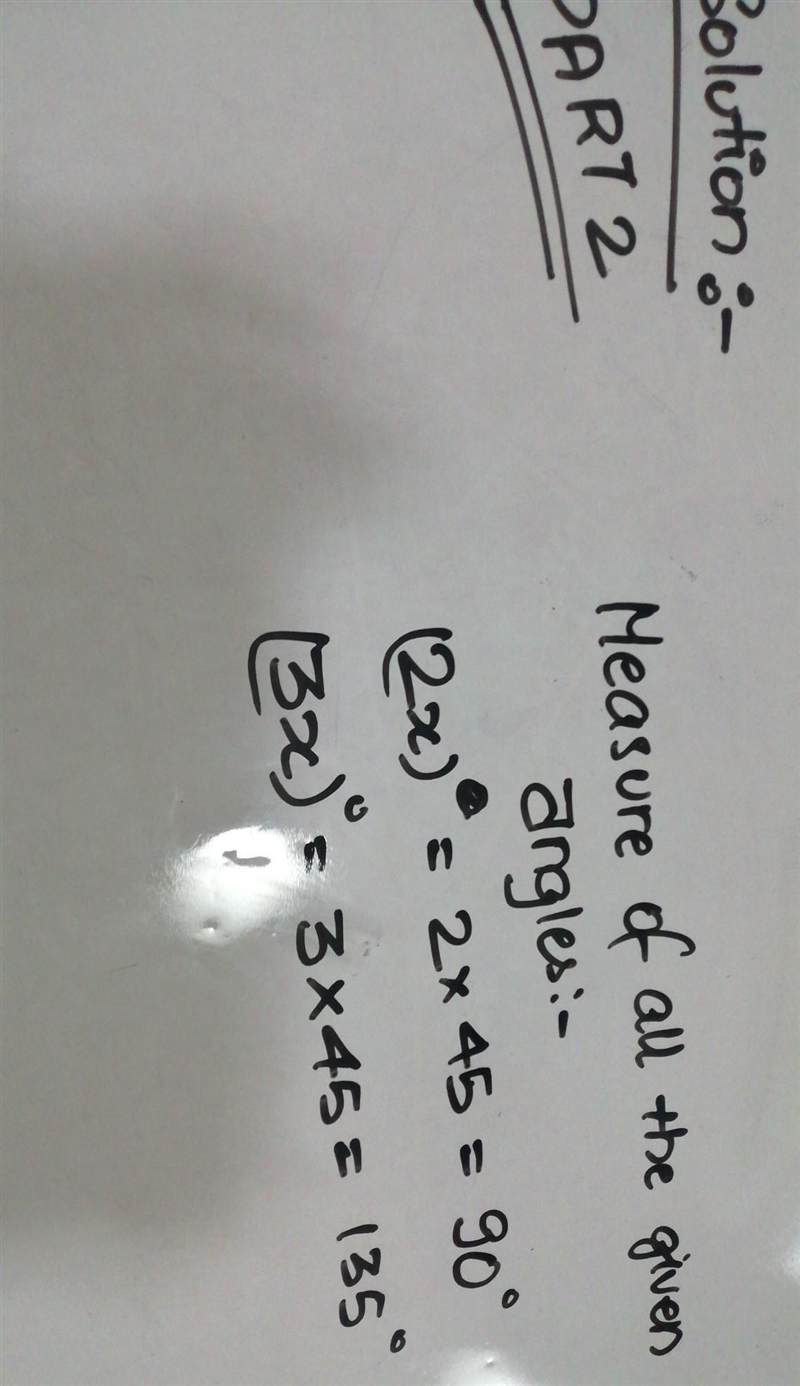 Solution :-
PART 2
Measure of all the given
angles:-
(2x)° = 2 × 45 = 90°
(3x)° = 3 × 45 = 135°